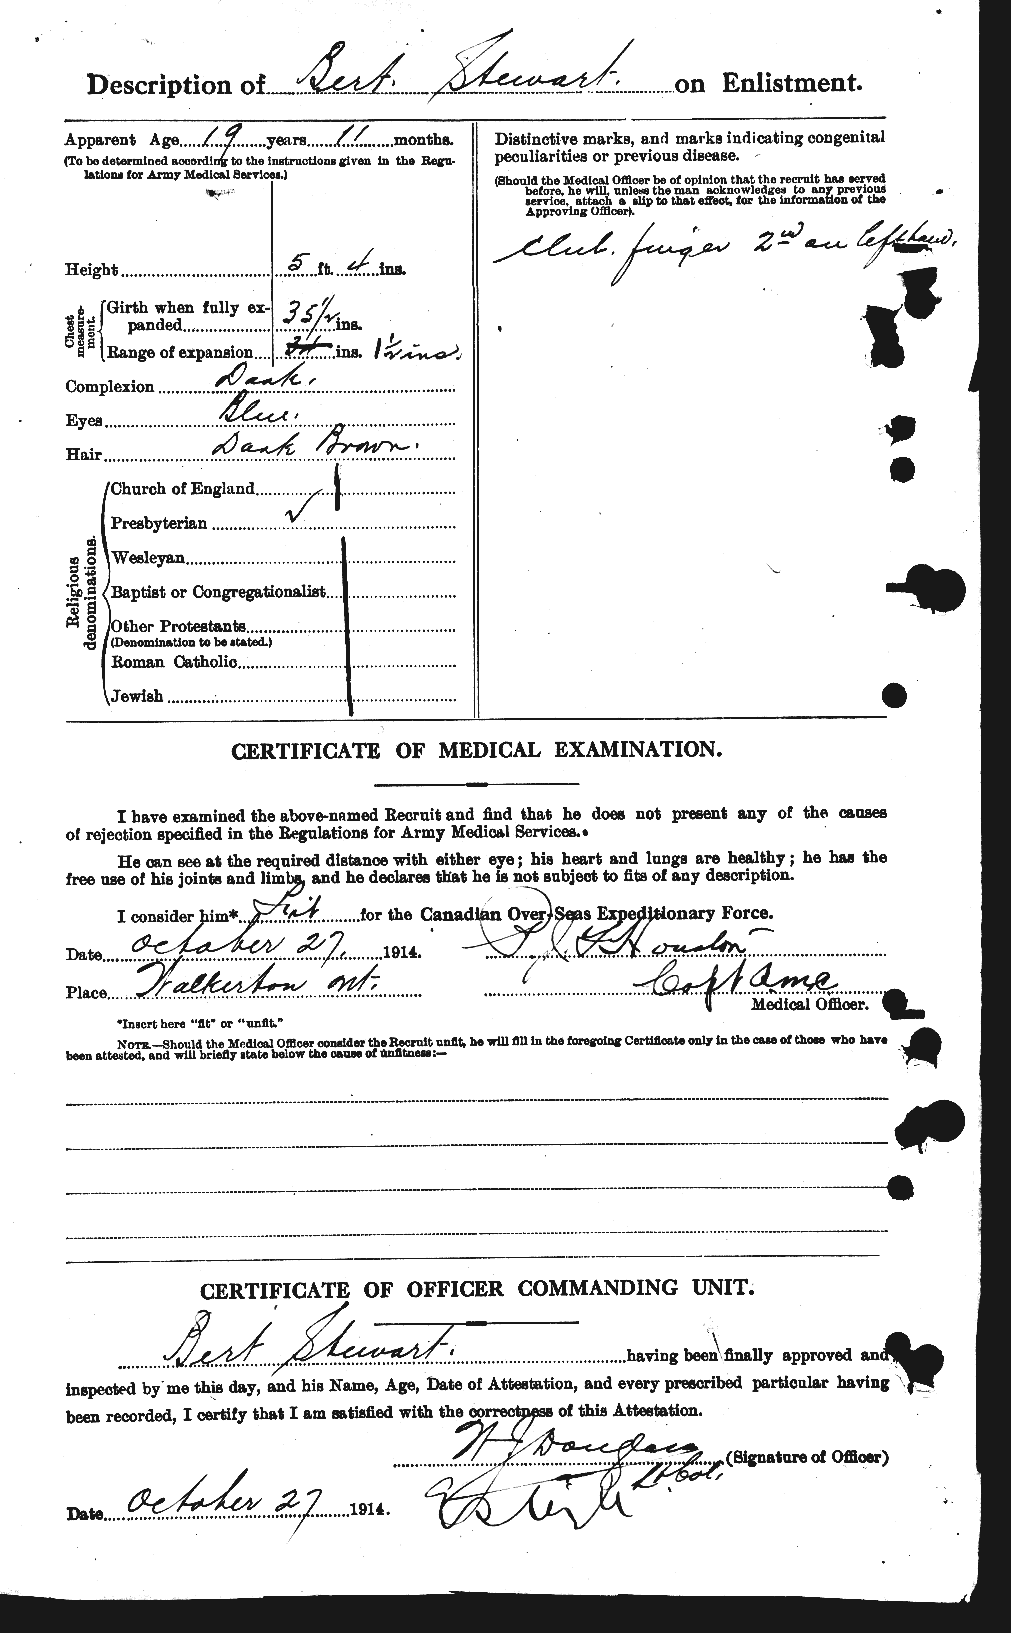 Description of Bert. Stewart. on Enlistment.
Apparent Age 19 years 11 months.
(To be determined according to the instructions given in the Regu-
lations for Army Medical Services.)
Height 5 ft. 4 ins.
Chest measure-ment.
Girth when fully ex-
panded 35 1/2 ins.
Range of expansion ins. 1 1/2 ins.
Complexion Dark.
Eyes Blue.
Hair Dark Brown.
Religious denominations.
Church of England
Presbyterian ✓
Wesleyan
Baptist or Congregationalist
Other Protestants
(Denomination to be stated.)
Roman Catholic
Jewish
Distinctive marks, and marks indicating congenital
peculiarities or previous disease.
(Should the Medical Officer be of opinion that the recruit has served
before, he will, unless the man acknowledges to any previous
service, attach a slip to that effect, for the information of the
Approving Officer).
Club. finger 2nd on left hand.
CERTIFICATE OF MEDICAL EXAMINATION.
I have examined the above-named Recruit and find that he does not present any of the causes
of rejection specified in the Regulations for Army Medical Services.
He can see at the required distance with either eye; his heart and lungs are healthy; he has the
free use of his joints and limbs, and he declares that he is not subject to fits of any description.
I consider him* Fit for the Canadian Over-Seas Expeditionary Force.
Date October 27, 1914. Houston
Place Walkerton Ont. Capt AMC
Medical Officer.
*Insert here "fit" or "unfit."
NOTE.—Should the Medical Officer consider the Recruit unfit, he will fill in the foregoing Certificate only in the case of those who have
been attested, and will briefly state below the cause of unfitness:—
CERTIFICATE OF OFFICER COMMANDING UNIT.
Bert Stewart. having been finally approved and
inspected by me this day, and his Name, Age, Date of Attestation, and every prescribed particular having
been recorded, I certify that I am satisfied with the correctness of this Attestation.
Douglass (Signature of Officer)
Lt. Col.
Date October 27 1914.